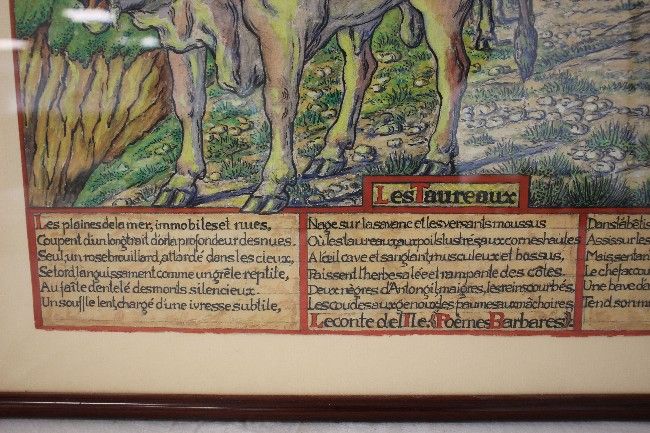 Les Taureaux
Les plaines de la mer, immobiles et nues,
Coupent d'un long trait d'or la profondeur des nues.
Seul, un rose brouillard, attardé dans les cieux,
Se tord languissamment comme un grêle reptile,
Au faîte dentelé des monts silencieux.
Un souffle lent, chargé d'une ivresse subtile,
Nage sur la savane et les versants moussus
Où les taureaux aux poils lustrés, aux cornes hautes
A l'œil cave et sanglant, musculeux et bossus,
Paissent l'herbe salée et rampante des côtes.
Deux nègres d'Antongil, maigres, les reins courbés,
Les coudes aux genoux, les paumes aux mâchoires
Leconte de l'Ile. (Poèmes Barbares).
Dans l'abêti
Assis sur les
Mais, sentant
Le chef accou
Une bave d'a
Tend son mu